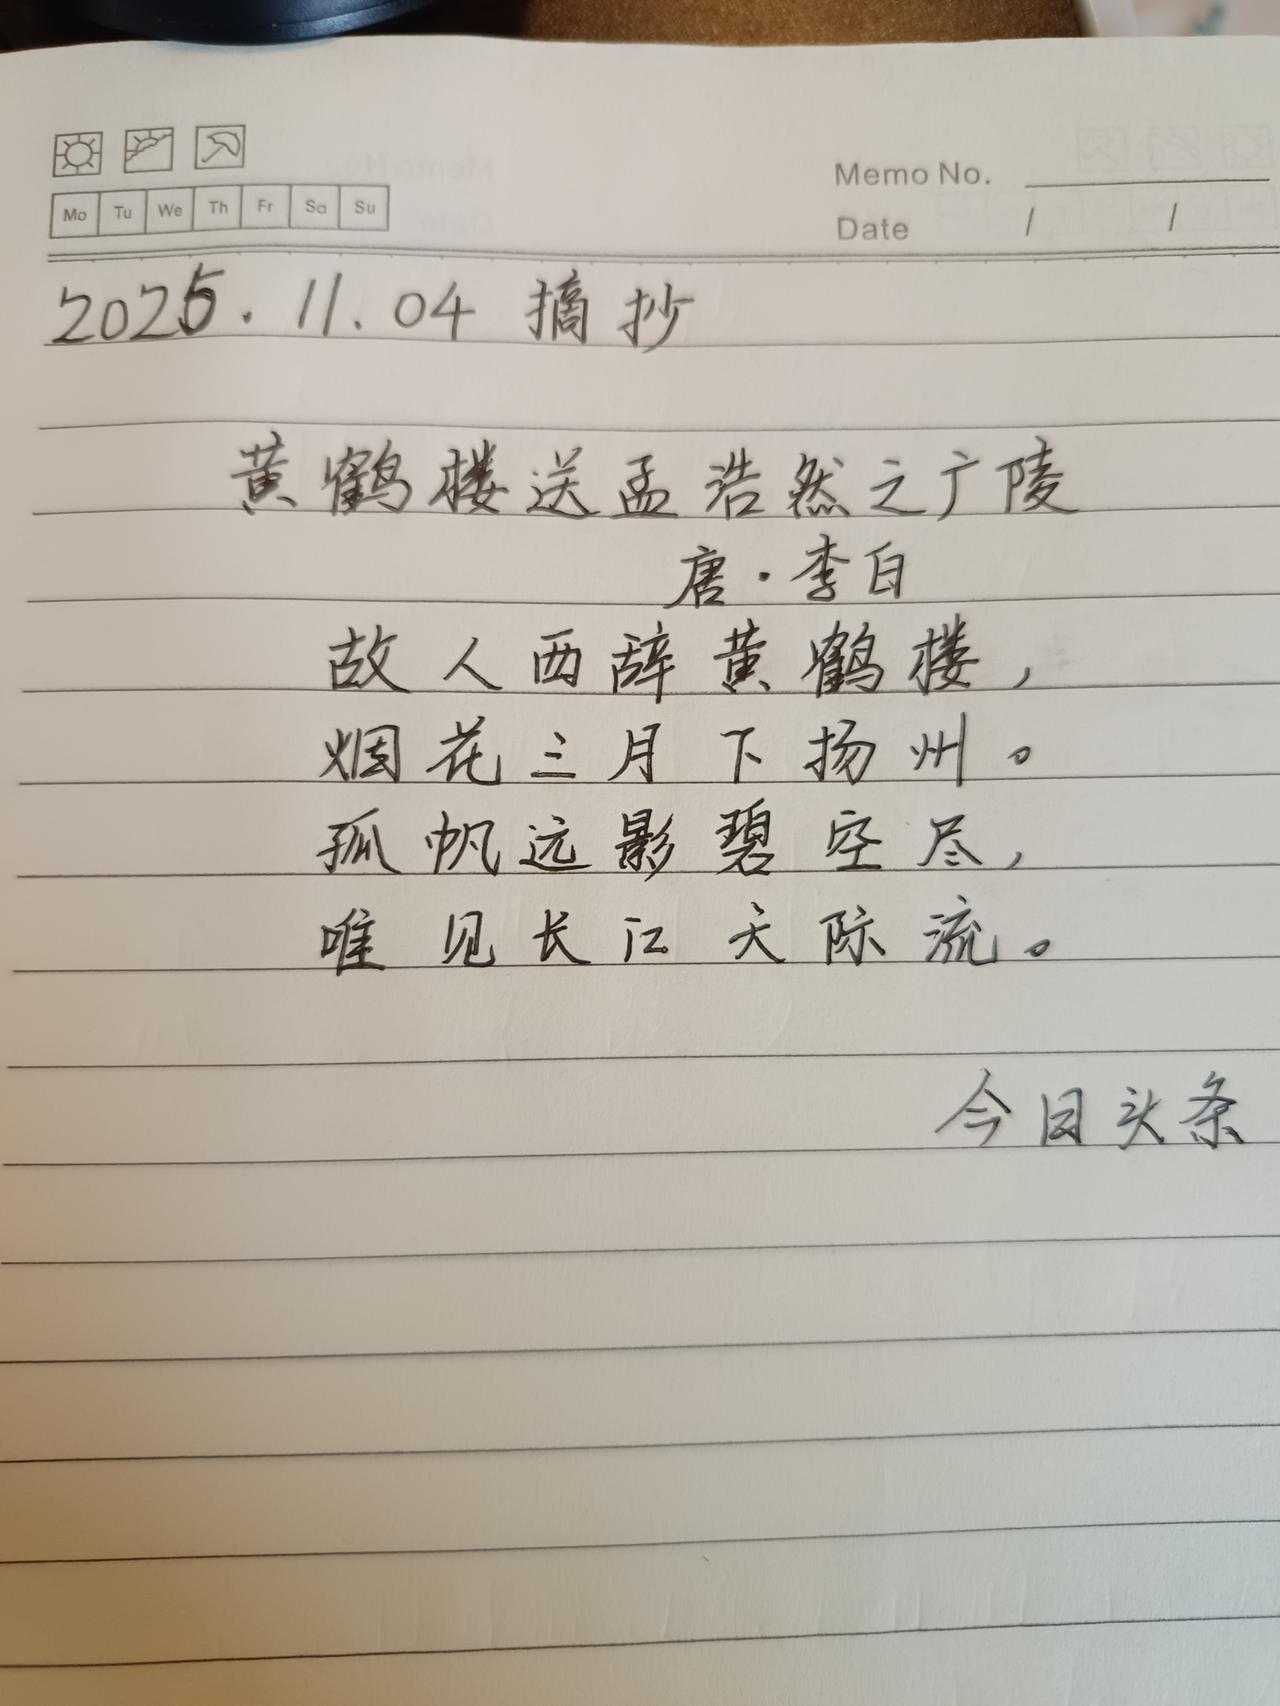 Memo No.
Mo Tu We Th Fr Sa Su
Date / /
2025.11.04 摘抄
黄鹤楼送孟浩然之广陵
唐·李白
故人西辞黄鹤楼，
烟花三月下扬州。
孤帆远影碧空尽，
唯见长江天际流。
今日头条